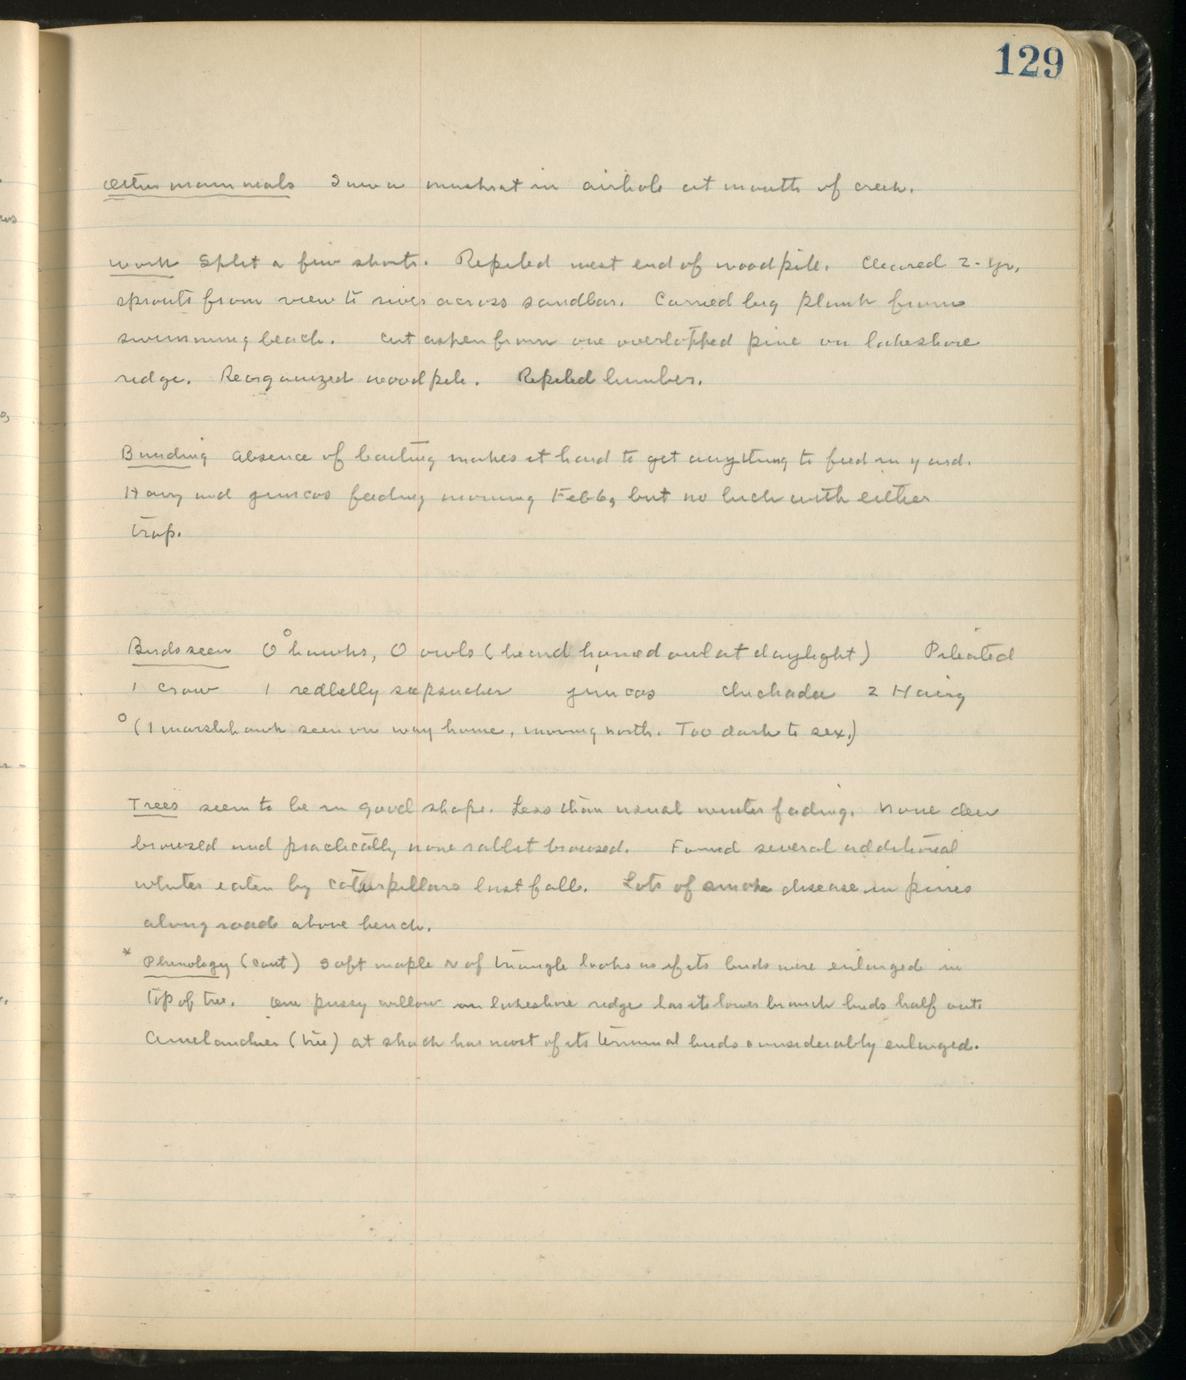 129
Other mammals Saw a muskrat in airhole at mouth of creek.
Work Split a few shorts. Repiled west end of woodpile. Cleared 2-yr.
sprouts from view to river across sandbar. Carried big plank from
swimming beach. Cut aspen from one overtopped pine on lakeshore
ridge. Reorganized woodpile. Repiled lumber.
Banding Absence of baiting makes it hard to get anything to feed in yard.
Hairy and juncos feeding morning Feb 6, but no luck with either
trap.
Birds seen 0° hawks, 0 owls (heard horned owl at daylight) Pileated
1 crow 1 redbelly sapsucker juncos chickadee 2 Hairy
° (1 marsh hawk seen on way home, moving north. Too dark to sex.)
Trees seem to be in good shape. Less than usual winter fading. None deer
browsed and practically none rabbit browsed. Found several additional
whites eaten by caterpillars last fall. Lots of smoke disease in pines
along road above bench.
* Phenology (cont) Soft maple N of triangle looks as if its buds were enlarged in
top of tree. One pussy willow on lakeshore ridge has its lower branch buds half out.
Amelanchier (tree) at shack has most of its terminal buds considerably enlarged.